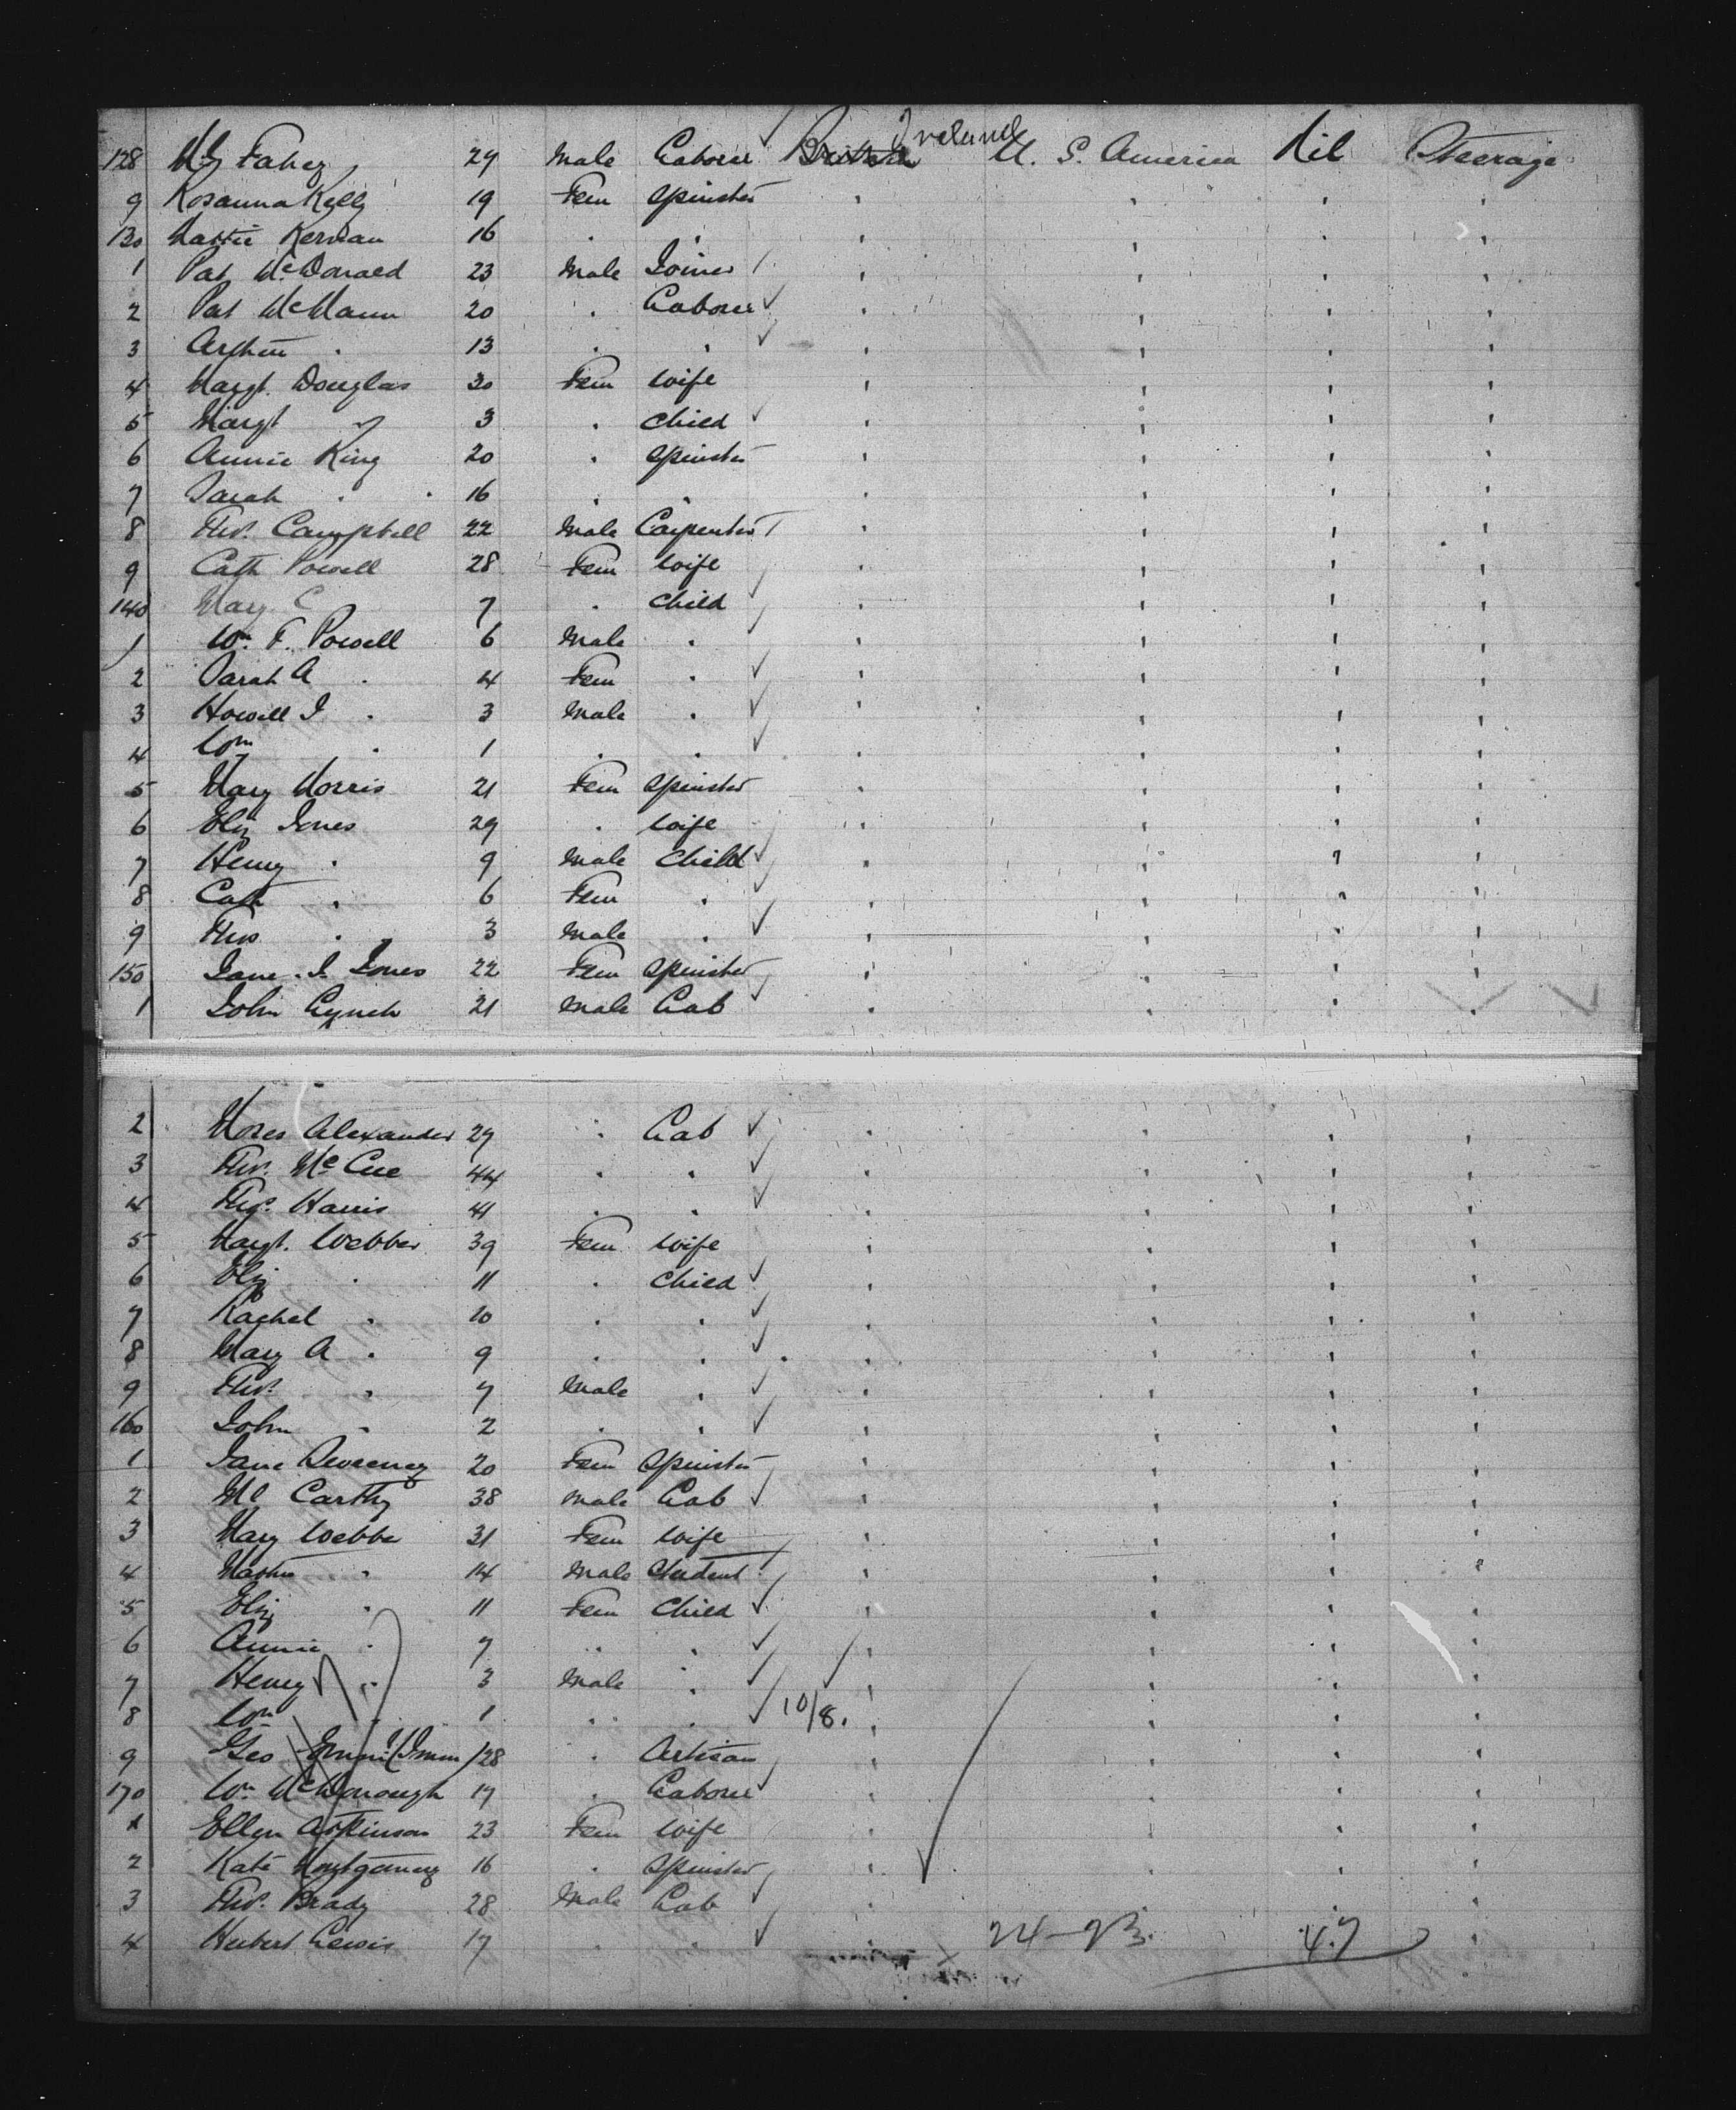 128 Ml Fahey 27 Male Laborer British Ireland U. S. America Nil Steerage
9 Rosanna Kelly 19 Fem Spinster " " " "
130 Kernan 16 " " " " " "
1 Pat McDonald 23 Male Joiner " " " "
2 Pat McMann 20 " Laborer " " " "
3 Arthur " 13 " " " " " "
4 Margt. Douglas 30 Fem Wife " " " "
5 Margt " 3 " Child " " " "
6 Annie King 20 " Spinster " " " "
7 Sarah " 16 " " " " " "
8 Thos. Campbell 22 Male Carpenter " " " "
9 Cath Powell 28 Fem Wife " " " "
140 Mary C 7 " Child " " " "
1 Wm. F. Powell 6 Male " " " " "
2 Sarah A " 4 Fem " " " " "
3 Howell J " 3 Male " " " " "
4 Wm " 1 " " " " " "
5 Mary Morris 21 Fem Spinster " " " "
6 Eliz Jones 29 " Wife " " " "
7 Henry " 9 Male Child " " " "
8 Cath " 6 Fem " " " " "
9 Thos " 3 Male " " " " "
150 Jane. J. Jones 22 Fem Spinster " " " "
1 John Lynch 21 Male Lab " " " "
2 Moses Alexander 27 " Lab " " " "
3 Thos. McCue 44 " " " " " "
4 Thos. Harris 41 " " " " " "
5 Margt. Webber 39 Fem Wife " " " "
6 Eliz " 11 " Child " " " "
7 Rachel " 10 " " " " " "
8 Mary A " 9 " " " " " "
9 Thos. " 7 Male " " " " "
160 John " 2 " " " " " "
1 Jane Sweeney 20 Fem Spinster " " " "
2 Ml Carthy 38 Male Lab " " " "
3 Mary Webbe 31 Fem Wife " " " "
4 " 14 Male Student " " " "
5 Eliz " 11 Fem Child " " " "
6 Annie " 7 " " " " " "
7 Henry " 3 Male " " " " "
8 Wm " 1 " " 10/8. " " " "
9 Geo 28 " Artisan " " " "
170 Wm McDonough 17 " Laborer " " " "
1 Ellen Atkinson 23 Fem Wife " " " "
2 Kate Montgomery 16 " Spinster " " " "
3 Thos. Brady 28 Male Lab " " " "
4 Hubert Lewis 17 " " " 24-23. 47 "